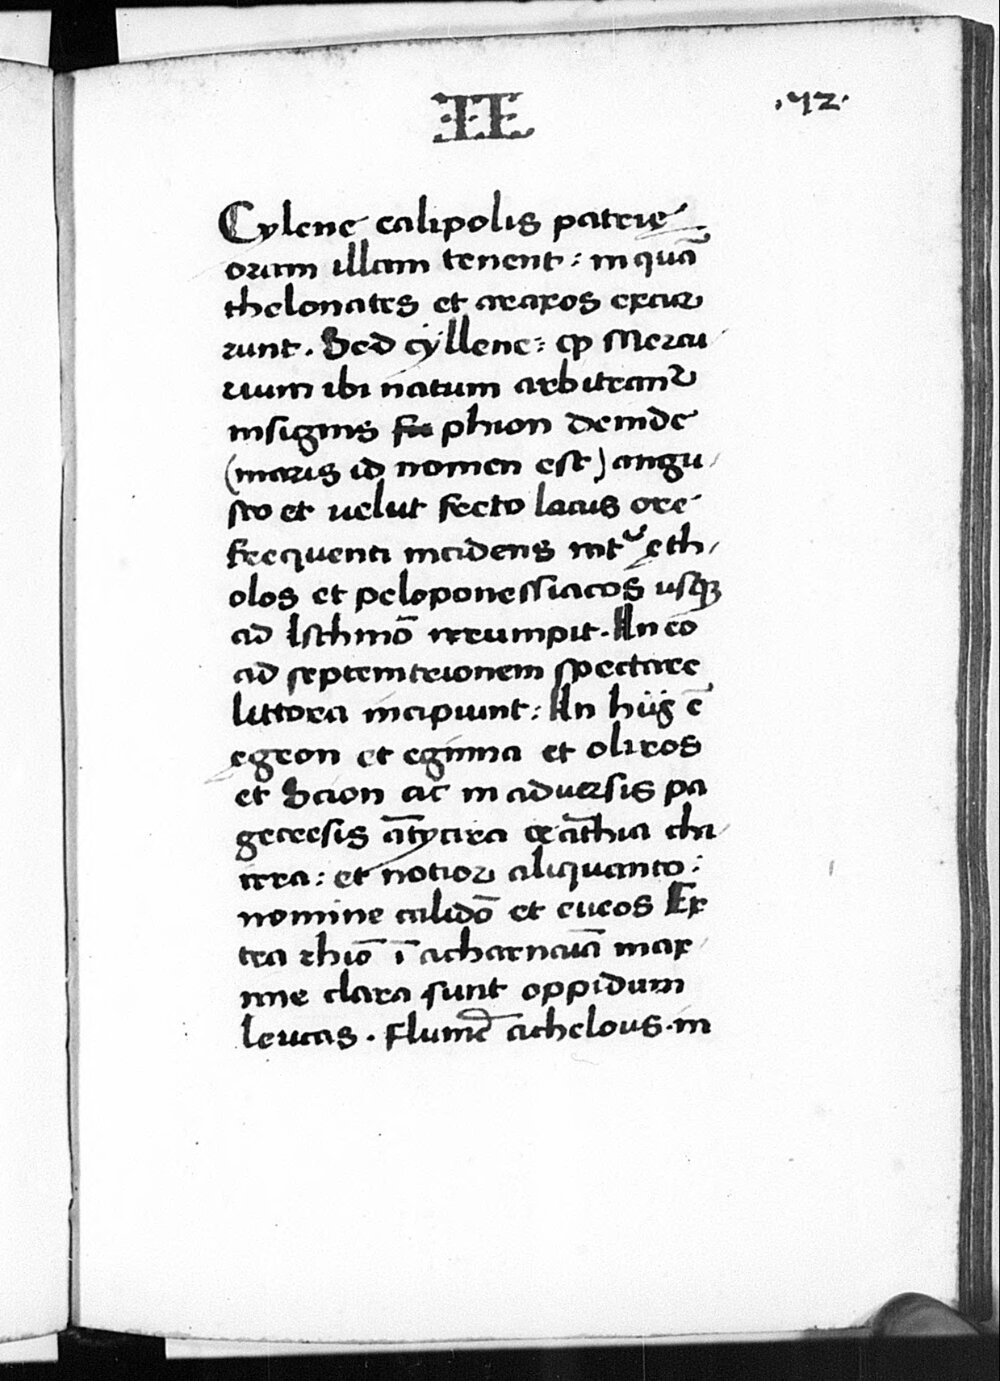 II
.42.
Cylene calipolis patrie
oram illam tenent: in quā
thelonates et araxos excur
runt. Sed cyllene: ꝙ Mercu
rium ibi natum arbitrant᷑
insignis phion deinde
(maris id nomen est) angu
sto et velut fecto lacus ore
frequenti incidens int᷑ eth
olos et peloponessiacos usqꝫ
ad Isthmō irrumpit. In eo
ad septemtrionem spectare
littora incipiunt: In hiis ē
egeon et eginna et oliros
et Scion ac in adversis pa
geresis ātycira oeāthia chi
rra: et notior aliquanto:
nomine calidō et eueos Ex
tra rhiō ī acharnaia max
ime clara sunt oppidum
leucas. flumē achelous. in